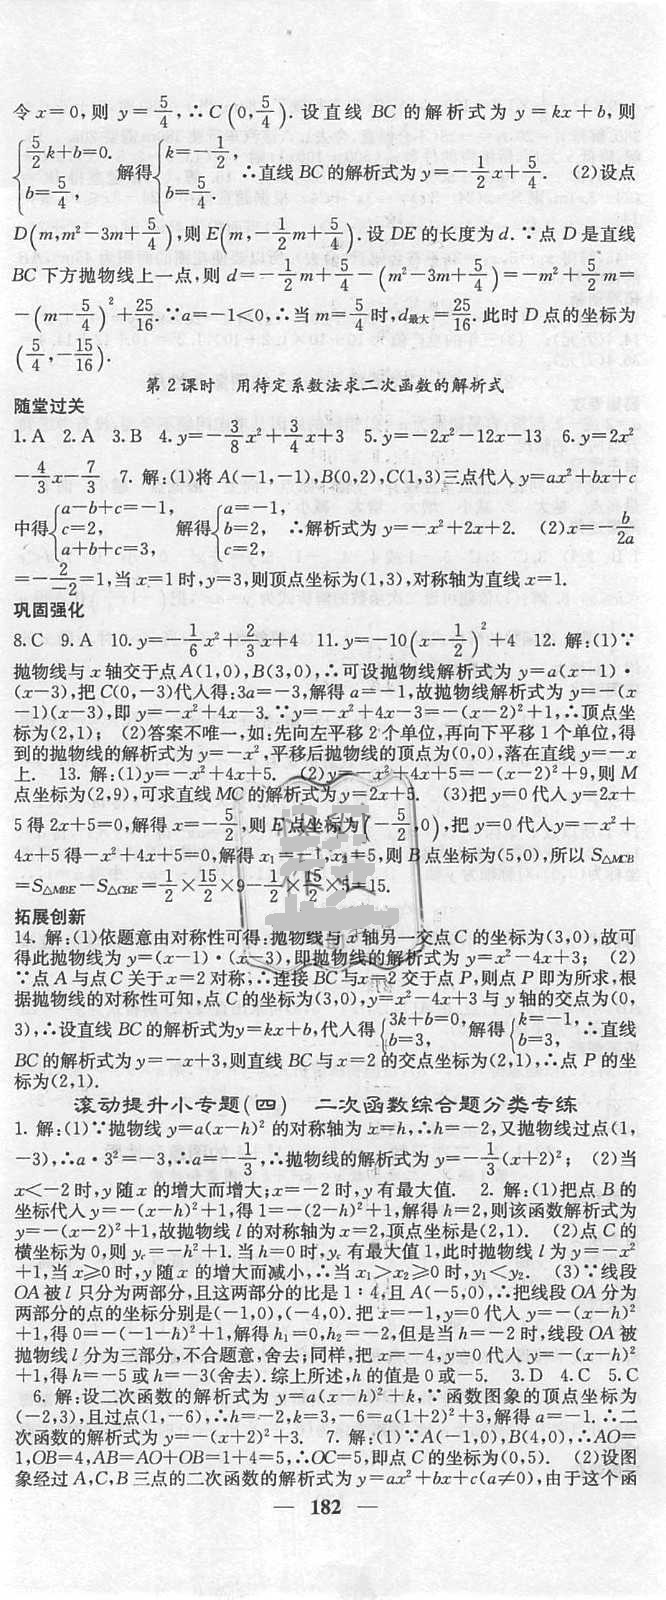 令x=0,则 y=5/4,∴C(0,5/4).设直线 BC 的解析式为 y=kx+b,则
{5/2k+b=0. b=5/4, 解得{k=-1/2, b=5/4, ∴直线BC的解析式为y=-1/2x+5/4. (2)设点
D(m,m²-3m+5/4),则E(m,-1/2m+5/4).设 DE 的长度为 d.∵点 D 是直线
BC 下方抛物线上一点,则 d=-1/2m+5/4-(m²-3m+5/4)=-m²+5/2m=
-(m-5/4)²+25/16.∵a=-1<0,∴当 m=5/4时,d最大=25/16.此时 D 点的坐标为
(5/4,-15/16).
第2课时 用待定系数法求二次函数的解析式
随堂过关
1.A 2.A 3.B 4.y=-3/8x²+3/4x+3 5.y=-2x²-12x-13 6.y=2x²
-4/3x-7/3 7.解:(1)将 A(-1,-1),B(0,2),C(1,3)三点代人 y=ax²+bx+c
中得{a-b+c=-1, c=2, a+b+c=3, 解得{a=-1, b=2, c=2, ∴解析式为 y=-x²+2x+2. (2)x=-b/2a
=-2/-2=1,当 x=1 时,y=3,则顶点坐标为(1,3),对称轴为直线 x=1.
巩固强化
8.C 9.A 10.y=-1/6x²+2/3x+4 11.y=-10(x-1/2)²+4 12.解:(1)∵
抛物线与 x 轴交于点 A(1,0),B(3,0),∴可设抛物线解析式为 y=a(x-1)·
(x-3),把 C(0,-3)代人得:3a=-3,解得 a=-1,故抛物线解析式为 y=-(x
-1)(x-3),即 y=-x²+4x-3.∵y=-x²+4x-3=-(x-2)²+1,∴顶点坐
标为(2,1); (2)答案不唯一,如:先向左平移2个单位,再向下平移1个单位,得
到的抛物线的解析式为 y=-x²,平移后抛物线的顶点为(0,0),落在直线 y=-x
上. 13.解:(1)y=-x²+4x+5. (2)y=-x²+4x+5=-(x-2)²+9,则 M
点坐标为(2,9),可求直线MC的解析式为 y=2x+5. (3)把 y=0 代人 y=2x+
5得 2x+5=0,解得 x=-5/2,则 E 点坐标为(-5/2,0),把 y=0 代人y=-x²+
4x+5得-x²+4x+5=0,解得 x₁=-1,x₂=5,则 B 点坐标为(5,0),所以 S△MCB
=S△MBE-S△CBE=1/2×15/2×9-1/2×15/2×5=15.
拓展创新
14.解:(1)依题意由对称性可得:抛物线与 x 轴另一交点 C 的坐标为(3,0),故可
得此抛物线为 y=(x-1)·(x-3),即抛物线的解析式为 y=x²-4x+3; (2)
∵点 A 与点 C 关于 x=2 对称,∴连接 BC 与 x=2 交于点 P,则点 P 即为所求,根
据抛物线的对称性可知,点 C 的坐标为(3,0),y=x²-4x+3 与 y 轴的交点为(0,
3),∴设直线 BC 的解析式为y=kx+b,代人得{3k+b=0, b=3, 解得{k=-1, b=3, ∴直线
BC 的解析式为 y=-x+3,则直线 BC 与 x=2 的交点坐标为(2,1),∴点 P 的坐
标为(2,1).
滚动提升小专题(四) 二次函数综合题分类专练
1.解:(1)∵抛物线 y=a(x-h)² 的对称轴为 x=h,∴h=-2,又抛物线过点(1,
-3),∴a·3²=-3,∴a=-1/3,∴抛物线的解析式为 y=-1/3(x+2)²; (2)当
x<-2 时,y 随 x 的增大而增大;x=-2 时,y 有最大值. 2.解:(1)把点 B 的
坐标代人 y=-(x-h)²+1,得 1=-(2-h)²+1,解得 h=2,则该函数解析式为
y=-(x-2)²+1,故抛物线 l 的对称轴为 x=2,顶点坐标是(2,1). (2)点 C 的
横坐标为 0,则 yc=-h²+1.当 h=0 时,yc 有最大值 1,此时抛物线 l 为 y=-x²
+1,当 x≥0 时,y 随 x 的增大而减小,∴当 x₁>x₂≥0 时,y₁<y₂. (3)∵线段
OA 被 l 只分为两部分,且这两部分的比是 1:4,且 A(-5,0),∴把线段 OA 分为
两部分的点的坐标分别是(-1,0),(-4,0).把 x=-1,y=0 代人 y=-(x-h)²
+1,得 0=-(-1-h)²+1,解得 h₁=0,h₂=-2,但是当 h=-2 时,线段 OA 被
抛物线 l 分为三部分,不合题意,舍去;同样,把 x=-4,y=0 代人 y=-(x-h)²
+1,得 h=-5 或 h=-3(舍去).综上所述,h 的值是 0 或-5. 3.D 4.C 5.C
6.解:设二次函数的解析式为 y=a(x-h)²+k,∵函数图象的顶点坐标为
(-2,3),且过点(1,-6),∴h=-2,k=3,-6=a(1+2)²+3,解得 a=-1.∴二
次函数的解析式为 y=-(x+2)²+3. 7.解:(1)∵A(-1,0),B(4,0),∴AO=
1,OB=4,AB=AO+OB=1+4=5,∴OC=5,即点 C 的坐标为(0,5). (2)设图
象经过 A,C,B 三点的二次函数的解析式为 y=ax²+bx+c(a≠0),由于这个函
— 182 —